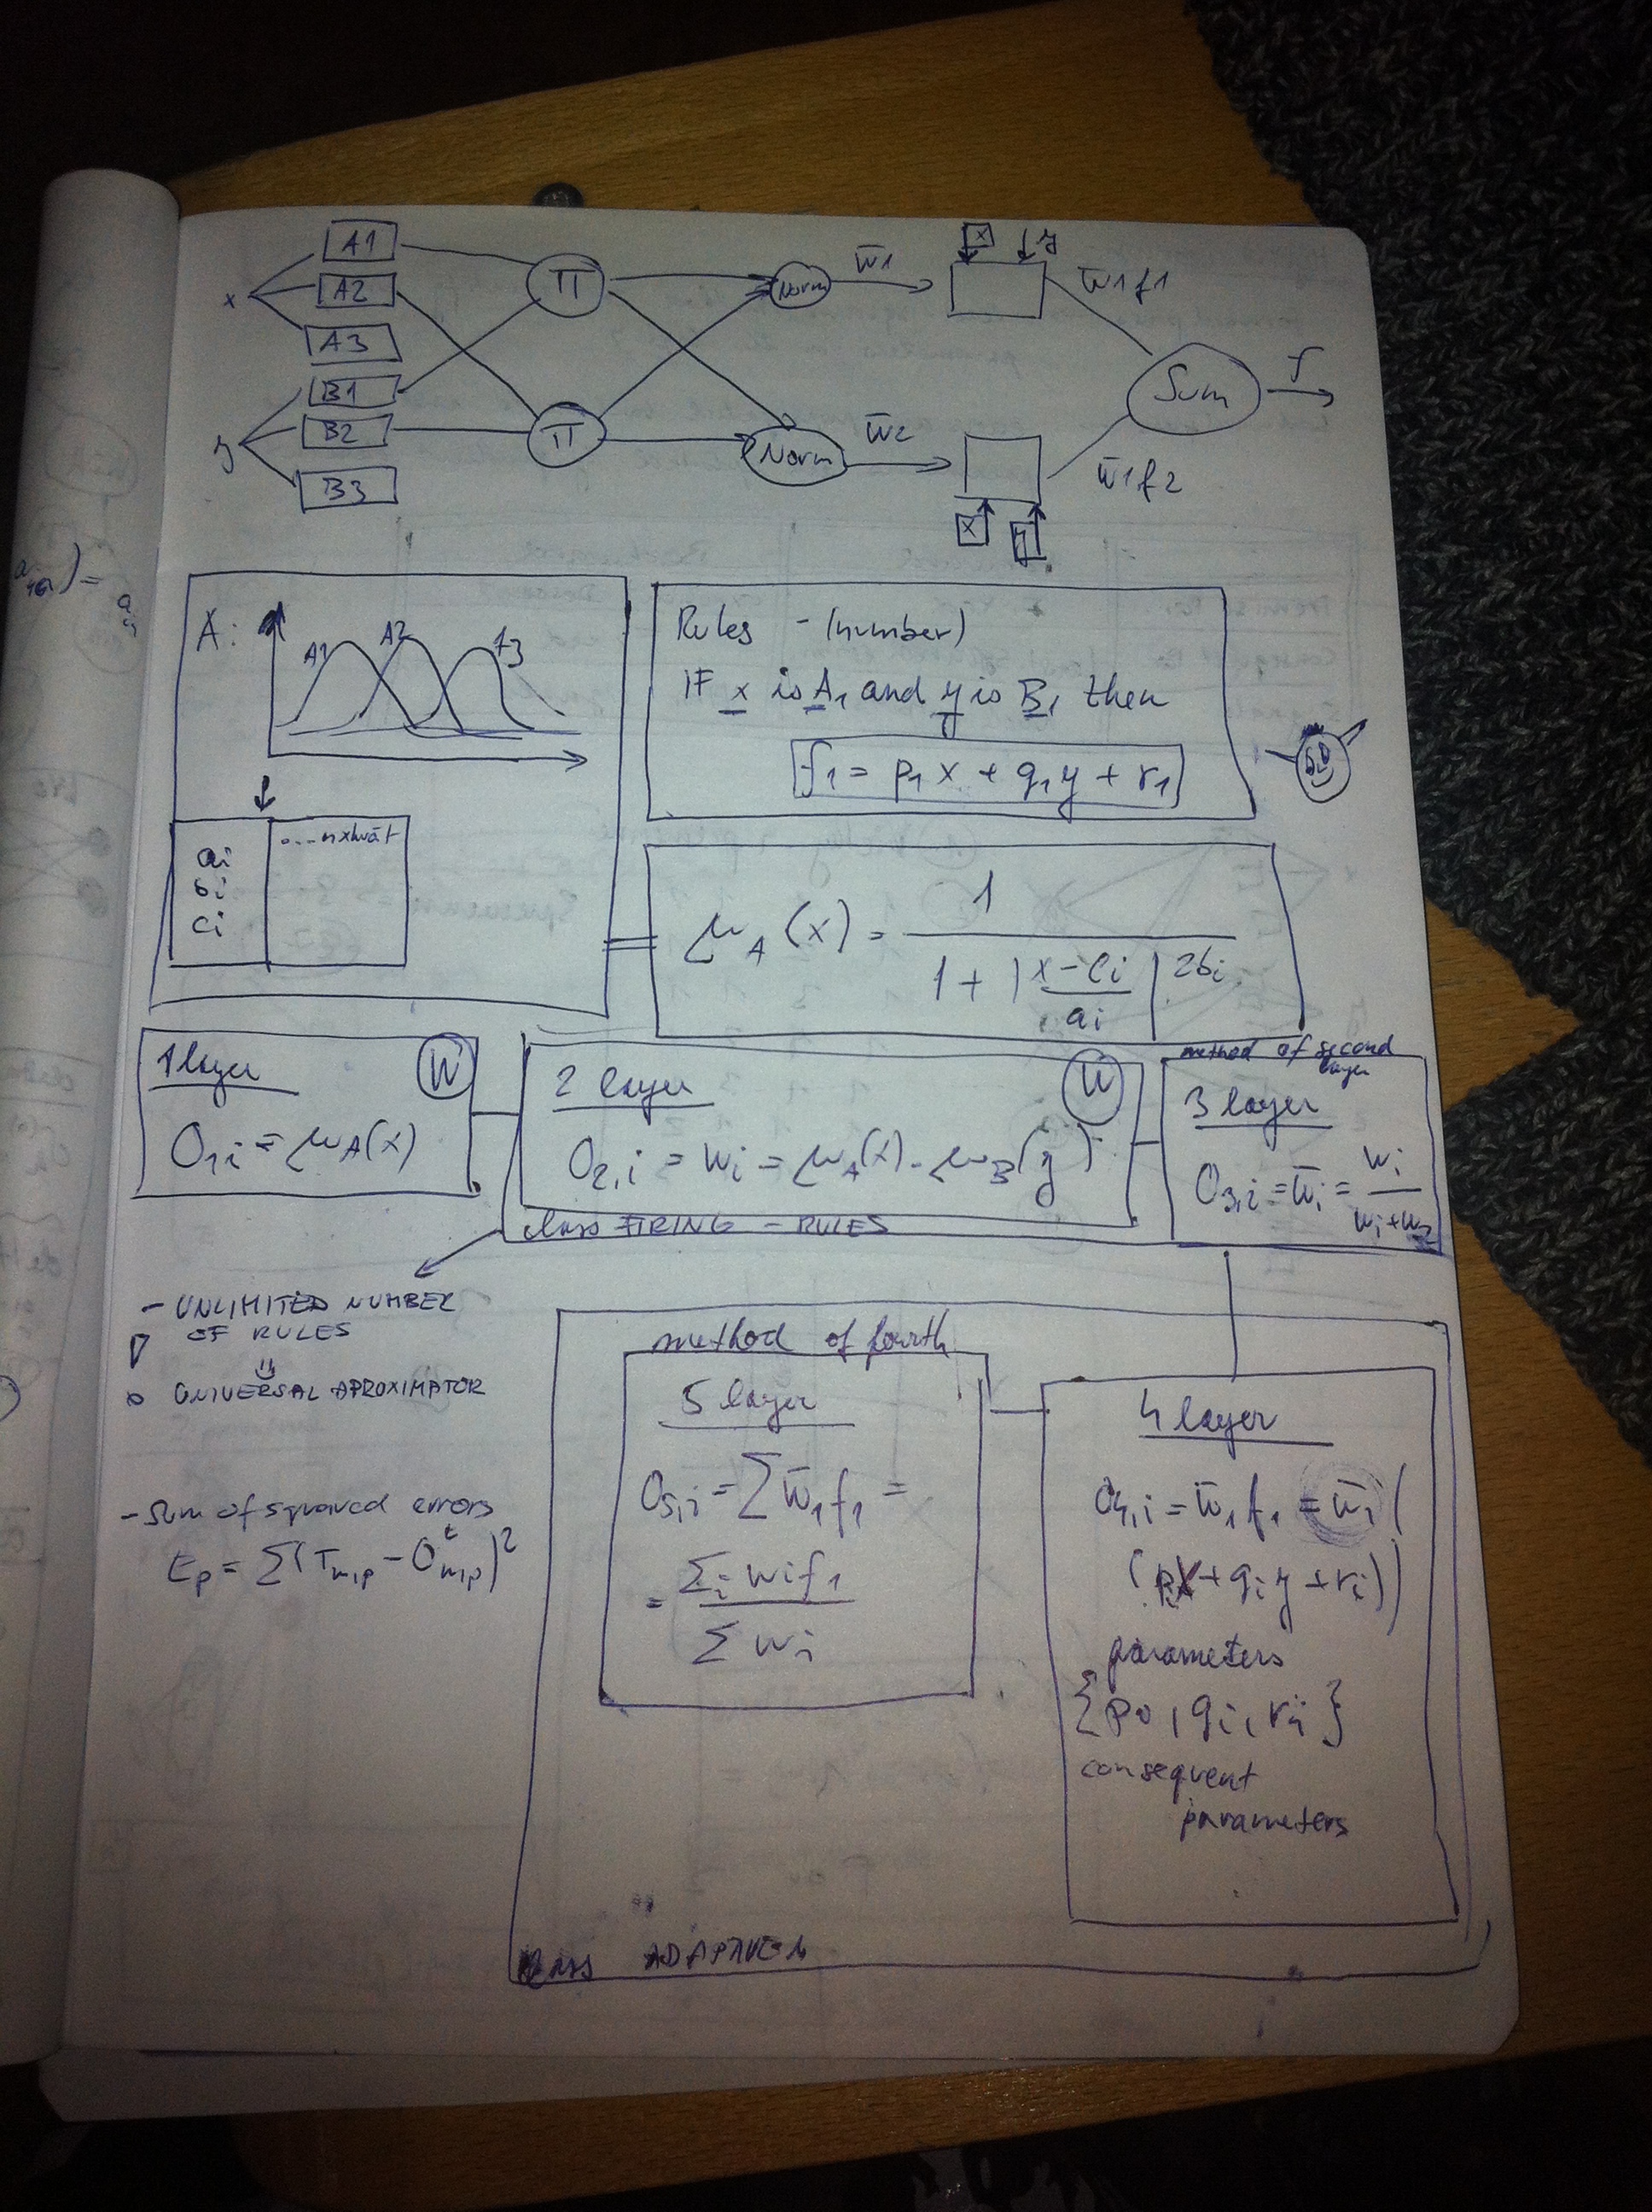 x
A1
A2
A3
y
B1
B2
B3
Π
Π
Norm
Norm
w̅1
w̅2
x y
x y
w̅1f1
w̅1f2
Sum
f
A:
A1 A2 A3
ai
bi
ci
Rules - (number)
IF x is A1 and y is B1 then
f1 = p1 x + q1 y + r1
μA (x) = 1 / (1 + | (x - ci) / ai | 2bi)
1 layer W
O1i = μA(x)
2 layer W
O2,i = wi = μA(x) . μB(y)
class FIRING - RULES
method of second
layer
3 layer
O3,i = w̅i = wi / (wi + w2)
- UNLIMITED NUMBER
OF RULES
UNIVERSAL APROXIMATOR
- Sum of squared errors
Ep = Σ(Tm,p - Otm,p)2
method of fourth
5 layer
O5,i = Σ w̅1f1 =
= Σi wi f1 / Σ wi
4 layer
O4,i = w̅1 f1 = w̅i (
(pix + qi y + ri))
parameters
{pi, qi, ri}
consequent
parameters
class ADAPTIVE